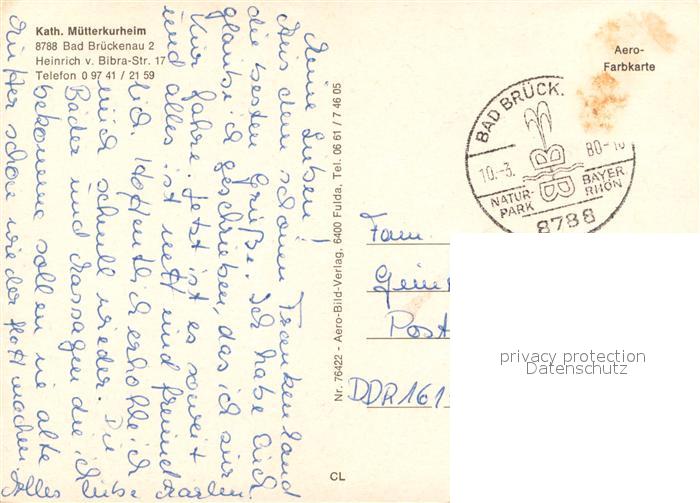 Kath. Mütterkurheim
8788 Bad Brückenau 2
Heinrich v. Bibra-Str. 17
Telefon 0 97 41 / 21 59
Meine Lieben!
Aus dem schönen Frankenland
die besten Grüße. Ich habe Euch
glaube ich geschrieben, das ich zur
Kur fahre. Jetzt ist es soweit
und alles ist nett und freund-
lich. Hoffentlich erhole ich
mich schnell wieder. Die
Bäder und Massagen die ich
bekomme sollen die alte
Mutter schon wieder flott machen. Alles
Liebe
Nr. 76422 - Aero-Bild-Verlag, 6400 Fulda, Tel. 06 61 / 7 46 05
CL
Aero-
Farbkarte
BAD BRÜCK.
10.-3. 80-10
NATUR-
PARK
BAYER.
RHÖN
8788
Fam.
Post
DDR 161
privacy protection
Datenschutz